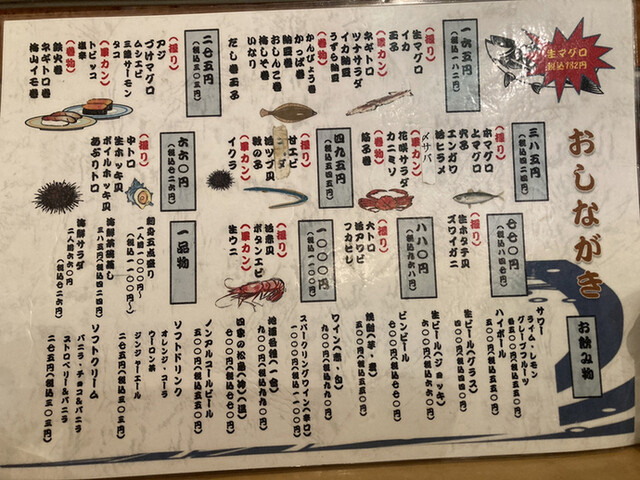 おしながき
生マグロ
税込732円
一六五円
(税込一八二円)
(握り)
生マグロ
イカ
玉子
(軍カン)
ツナサラダ
ネギトロ
イカ納豆
うずら納豆
(巻物)
かんぴょう巻
かっぱ巻
納豆巻
おしんこ巻
梅しそ巻
いなり
だし巻玉子
二七五円
(握り)
アジ
づけマグロ
ムシエビ
三陸サーモン
タコ
(軍カン)
トビッコ
塩辛
(巻物)
鉄火巻
ネギトロ巻
梅山イモ巻
三八五円
本マグロ
上マグロ
穴子
エンガワ
活ヒラメ
〆サバ
(軍カン)
花咲サラダ
カニミソ
(巻物)
筋子巻
四九五円
(税込五四五円)
(握り)
甘エビ
活ツブ貝
数の子
(軍カン)
イクラ
六六〇円
(税込七二六円)
(握り)
中トロ
生ホッキ貝
ボイルホッキ貝
あぶりトロ
七七〇円
(税込八四七円)
(握り)
生ホタテ貝
ズワイガニ
八八〇円
(税込九六八円)
(握り)
大トロ
活アワビ
フカヒレ
一〇〇〇円
(税込一一〇〇円)
(握り)
活赤貝
ボタンエビ
(軍カン)
生ウニ
一品物
刺身五点盛り
一人前一〇〇〇円~
(税込一一〇〇円~)
海鮮茶碗蒸し
三八五円(税込四二四円)
海鮮サラダ
一人前六六〇円
(税込七二六円)
お飲み物
サワー
ライム・レモン
グレープフルーツ
各五〇〇円(税込五五〇円)
ハイボール
五〇〇円(税込五五〇円)
生ビール(グラス)
生ビール(ジョッキ)
六〇〇円(税込六六〇円)
ビンビール
七〇〇円(税込七七〇円)
焼酎(芋・麦)
五〇〇円(税込五五〇円)
ワイン(赤・白)
スパークリングワイン(辛口)
地酒各種(一合)
九〇〇円(税込九九〇円)
七〇〇円(税込七七〇円)
ノンアルコールビール
五〇〇円(税込五五〇円)
ソフトドリンク
オレンジ・コーラ
ウーロン茶
ジンジャーエール
ソフトクリーム
バニラ・チョコ&バニラ
ストロベリー&バニラ